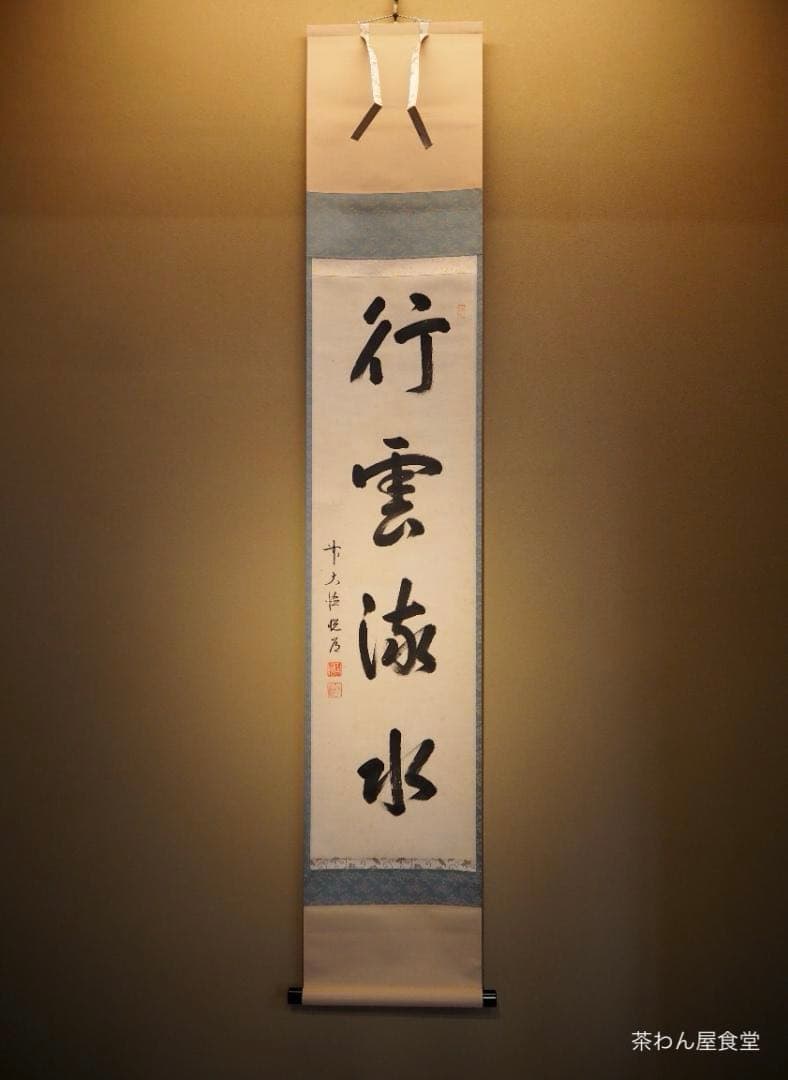 行雲流水
茶わん屋食堂